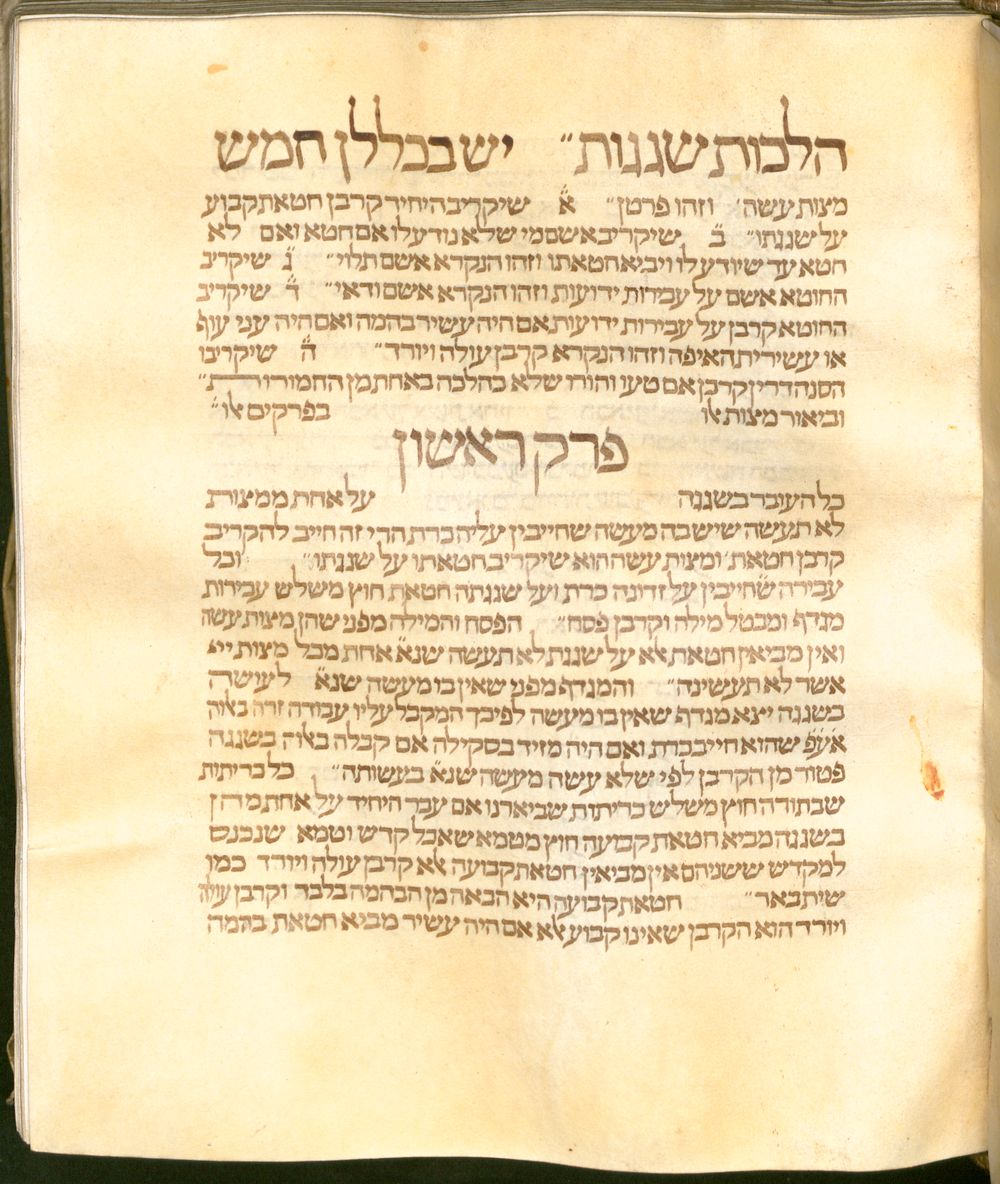 הלכות שגגות״ יש בכללן חמש
מצות עשה׳ וזהו פרטן״ א̈ שיקריב היחיד קרבן חטאת קבוע
על שגגתו״ ב̈ שיקריב אשם מי שלא נודע לו אם חטא ואם לא
חטא עד שיודע לו ויביא חטאתו וזהו הנקרא אשם תלוי״ ג̈ שיקריב
החוטא אשם על עבירות ידועות וזהו הנקרא אשם ודאי״ ד̈ שיקריב
החוטא קרבן על עבירות ידועות אם היה עשיר בהמה ואם היה עני עוף
או עשירית האיפה וזהו הנקרא קרבן עולה ויורד״ ה̈ שיקריבו
הסנהדרין קרבן אם טעו והורו שלא כהלכה באחת מן החמורות״
וביאור מצות אלו בפרקים אלו״
פרק ראשון
כל העובר בשגגה על אחת ממצות
לא תעשה שיש בה מעשה שחייבין עליה כרת הרי זה חייב להקריב
קרבן חטאת׳ ומצות עשה הוא שיקריב חטאתו על שגגתו״ וכל
עבירה שחייבין על זדונה כרת ועל שגגתה חטאת חוץ משלש עבירות
מגדף ומבטל מילה וקרבן פסח״ הפסח והמילה מפני שהן מצות עשה
ואין מביאין חטאת אלא על שגגת לא תעשה שנא̈ אחת מכל מצות ייי
אשר לא תעשינה״ והמגדף מפני שאין בו מעשה שנא̈ לעושה
בשגגה יצא מגדף שאין בו מעשה לפיכך המקבל עליו עבודה זרה באוה
אע̈פ שהוא חייב כרת ואם היה מזיד בסקילה אם קבלה באוה בשגגה
פטור מן הקרבן לפי שלא עשה מעשה שנא̈ בעשותה״ כל כריתות
שבתורה חוץ משלש כריתות שביארנו אם עבר היחיד על אחת מהן
בשגגה מביא חטאת קבועה חוץ מטמא שאכל קדש וטמא שנכנס
למקדש ששניהם אין מביאין חטאת קבועה אלא קרבן עולה ויורד כמו
שיתבאר״ חטאת קבועה היא הבאה מן הבהמה בלבד וקרבן עולה
ויורד הוא הקרבן שאינו קבוע אלא אם היה עשיר מביא חטאת בהמה